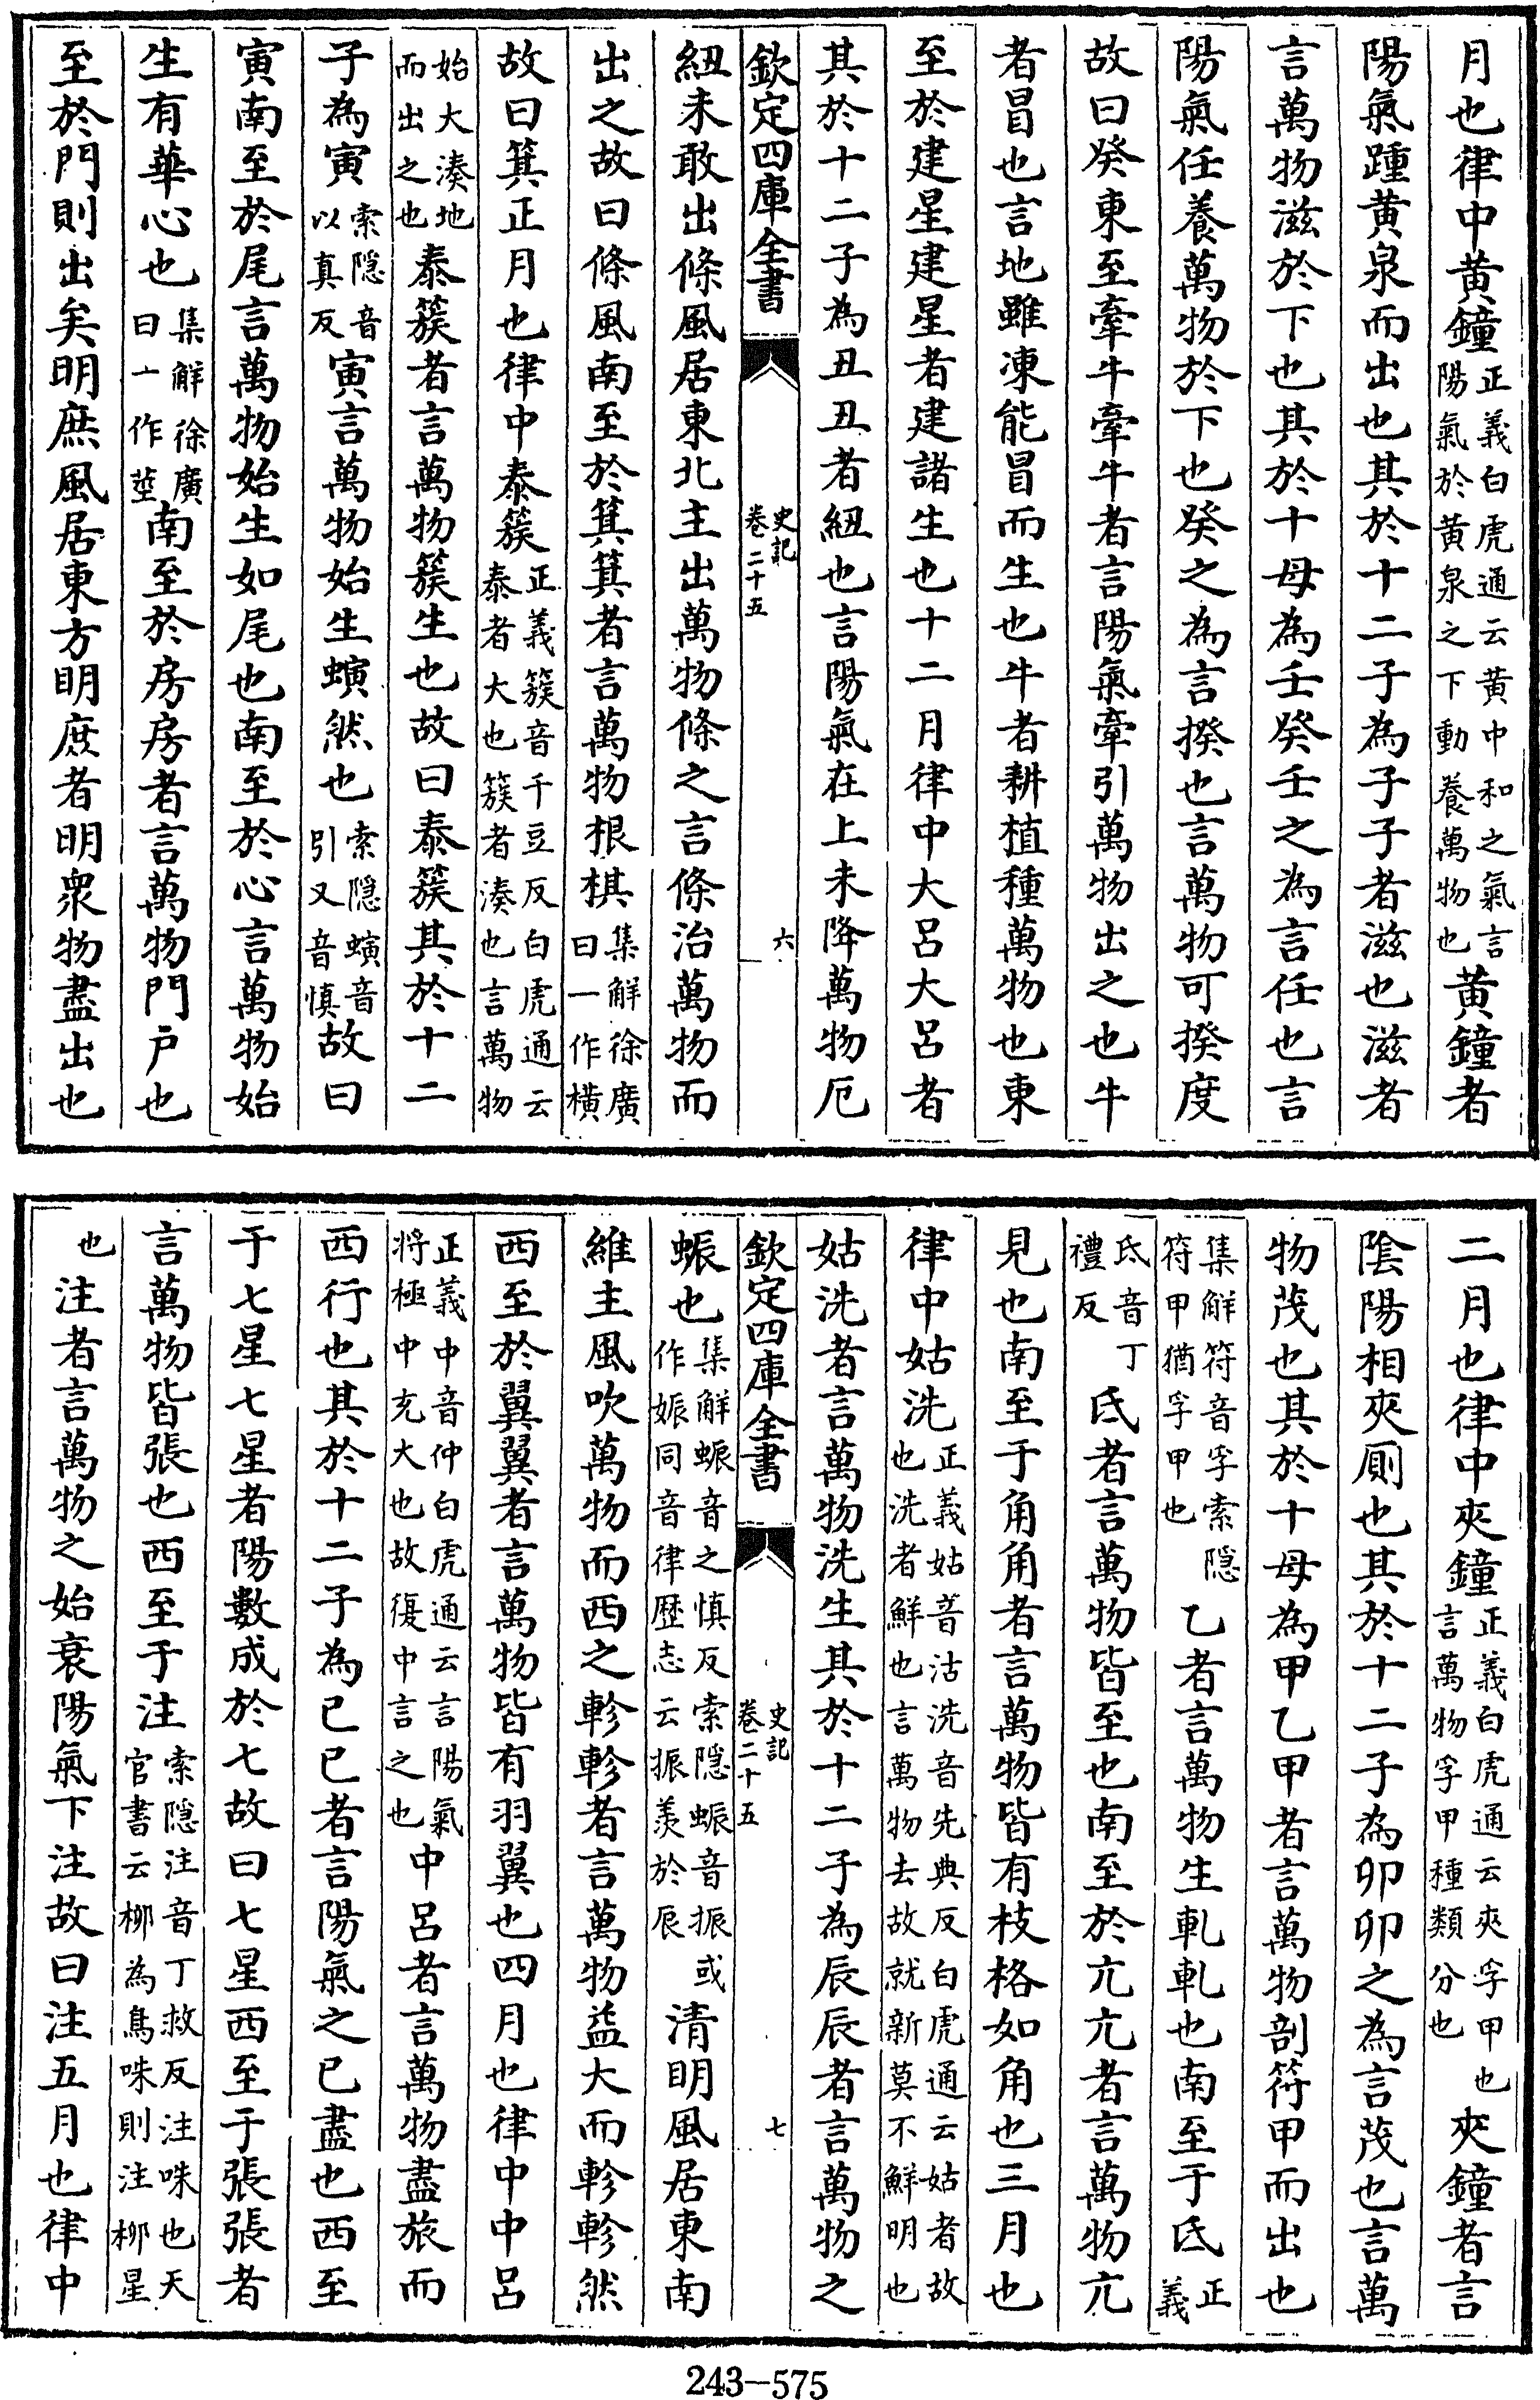 月也律中黄鐘正義白虎通云黄中和之氣言陽氣於黄泉之下動養萬物也黄鐘者
陽氣踵黄泉而出也其於十二子為子子者滋也滋者
言萬物滋於下也其於十母為壬癸壬之為言任也言
陽氣任養萬物於下也癸之為言揆也言萬物可揆度
故曰癸東至牽牛牽牛者言陽氣牽引萬物出之也牛
者冒也言地雖凍能冒而生也牛者耕植種萬物也東
至於建星建星者建諸生也十二月律中大呂大呂者
其於十二子為丑丑者紐也言陽氣在上未降萬物厄
欽定四庫全書 史記卷二十五 六
紐未敢出條風居東北主出萬物條之言條治萬物而
出之故曰條風南至於箕箕者言萬物根棋集解徐廣曰一作橫
故曰箕正月也律中泰簇正義簇音千豆反白虎通云泰者大也簇者湊也言萬物
始大湊地而出之也泰簇者言萬物簇生也故曰泰簇其於十二
子為寅索隠音以真反寅言萬物始生螾然也索隠螾音引又音慎故曰
寅南至於尾言萬物始生如尾也南至於心言萬物始
生有華心也集解徐廣曰一作莖南至於房房者言萬物門户也
至於門則出矣明庶風居東方明庶者明衆物盡出也
二月也律中夾鐘正義白虎通云夾孚甲也言萬物孚甲種類分也夾鐘者言
陰陽相夾厠也其於十二子為卯卯之為言茂也言萬
物茂也其於十母為甲乙甲者言萬物剖符甲而出也
集解符音孚索隠符甲猶孚甲也乙者言萬物生軋軋也南至于氐正義
氐音丁禮反氐者言萬物皆至也南至於亢亢者言萬物亢
見也南至于角角者言萬物皆有枝格如角也三月也
律中姑洗正義姑音沽洗音先典反白虎通云姑者故也洗者鮮也言萬物去故就新莫不鮮明也
姑洗者言萬物洗生其於十二子為辰辰者言萬物之
欽定四庫全書 史記卷二十五 七
蜄也集解蜄音之慎反索隠蜄音振或作娠同音律歴志云振羨於辰清明風居東南
維主風吹萬物而西之軫軫者言萬物益大而軫軫然
西至於翼翼者言萬物皆有羽翼也四月也律中中呂
正義中音仲白虎通云言陽氣將極中充大也故復中言之也中呂者言萬物盡旅而
西行也其於十二子為巳巳者言陽氣之已盡也西至
于七星七星者陽數成於七故曰七星西至于張張者
言萬物皆張也西至于注索隠注音丁救反注咮也天官書云柳為鳥咮則注柳星
也注者言萬物之始衰陽氣下注故曰注五月也律中
243—575